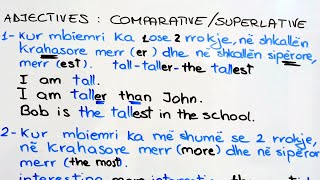 ADJECTIVES : COMPARATIVE/SUPERLATIVE
1- Kur mbiemri ka 1 ose 2 rrokje, në shkallën
krahasore merr (er) dhe në shkallën sipërore,
merr (est). tall-taller-the tallest
I am tall.
I am taller than John.
Bob is the tallest in the school.
2- Kur mbiemri ka më shumë se 2 rrokje,
në krahasore merr (more) dhe në sipëror
merr (the most).
interesting more